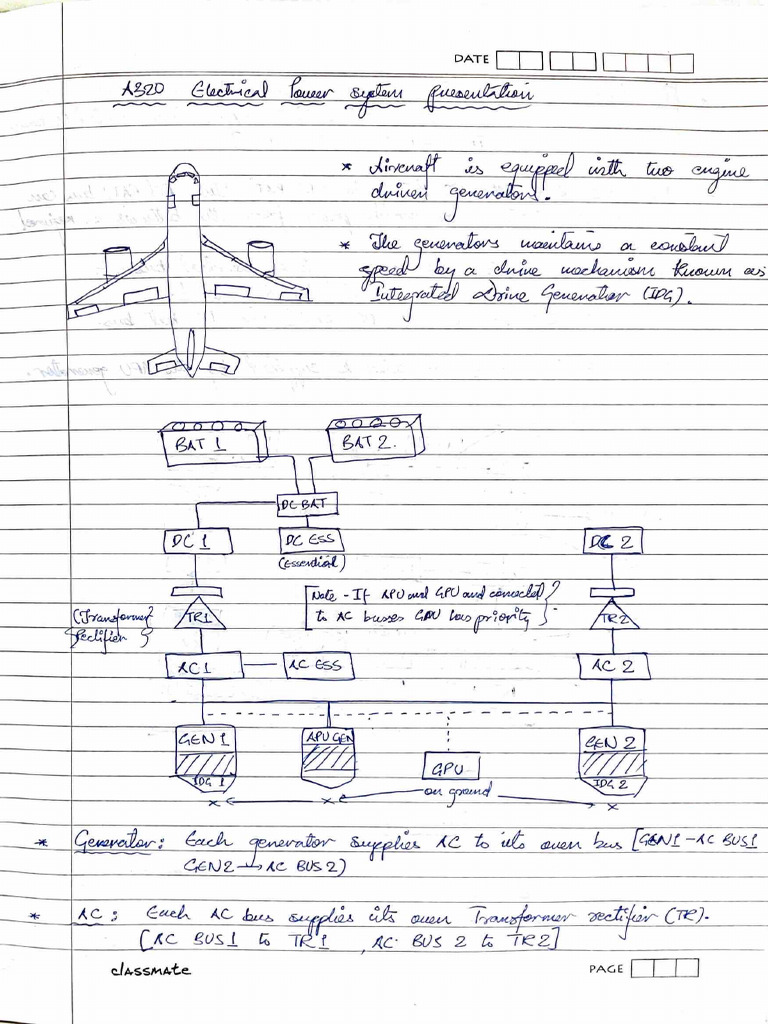 DATE
A320 Electrical Power System Presentation
* Aircraft is equipped with two engine
driven generators.
* The generators maintains a constant
speed by a drive mechanism known as
Integrated Drive Generator (IDG).
BAT 1
BAT 2.
DC BAT
DC 1
DC ESS
DC 2
(Essential)
[Note - If APU and GPU and connected
to AC busses GPU has priority
(Transformer
Rectifier)
TR1
TR2
AC1
AC ESS
AC 2
GEN 1
APU GEN
GEN 2
GPU
IDG 1
IDG 2
on ground
* Generator: Each generator supplies AC to its own bus [GEN1-AC BUS1
GEN2→AC BUS2)
* AC: Each AC bus supplies its own Transformer rectifier (TR).
[AC BUS1 to TR1, AC BUS 2 to TR2]
classmate
PAGE